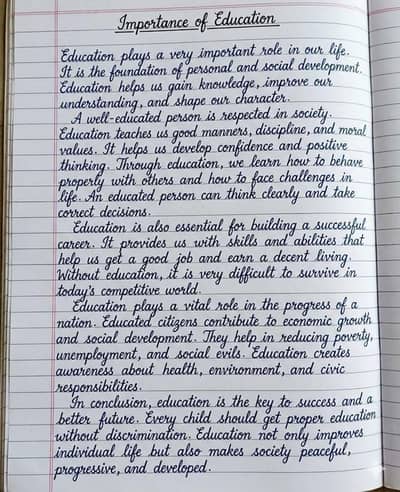 Importance of Education
Education plays a very important role in our life.
It is the foundation of personal and social development.
Education helps us gain knowledge, improve our
understanding, and shape our character.
A well-educated person is respected in society.
Education teaches us good manners, discipline, and moral
values. It helps us develop confidence and positive
thinking. Through education, we learn how to behave
properly with others and how to face challenges in
life. An educated person can think clearly and take
correct decisions.
Education is also essential for building a successful
career. It provides us with skills and abilities that
help us get a good job and earn a decent living.
Without education, it is very difficult to survive in
today's competitive world.
Education plays a vital role in the progress of a
nation. Educated citizens contribute to economic growth
and social development. They help in reducing poverty,
unemployment, and social evils. Education creates
awareness about health, environment, and civic
responsibilities.
In conclusion, education is the key to success and a
better future. Every child should get proper education
without discrimination. Education not only improves
individual life but also makes society peaceful,
progressive, and developed.